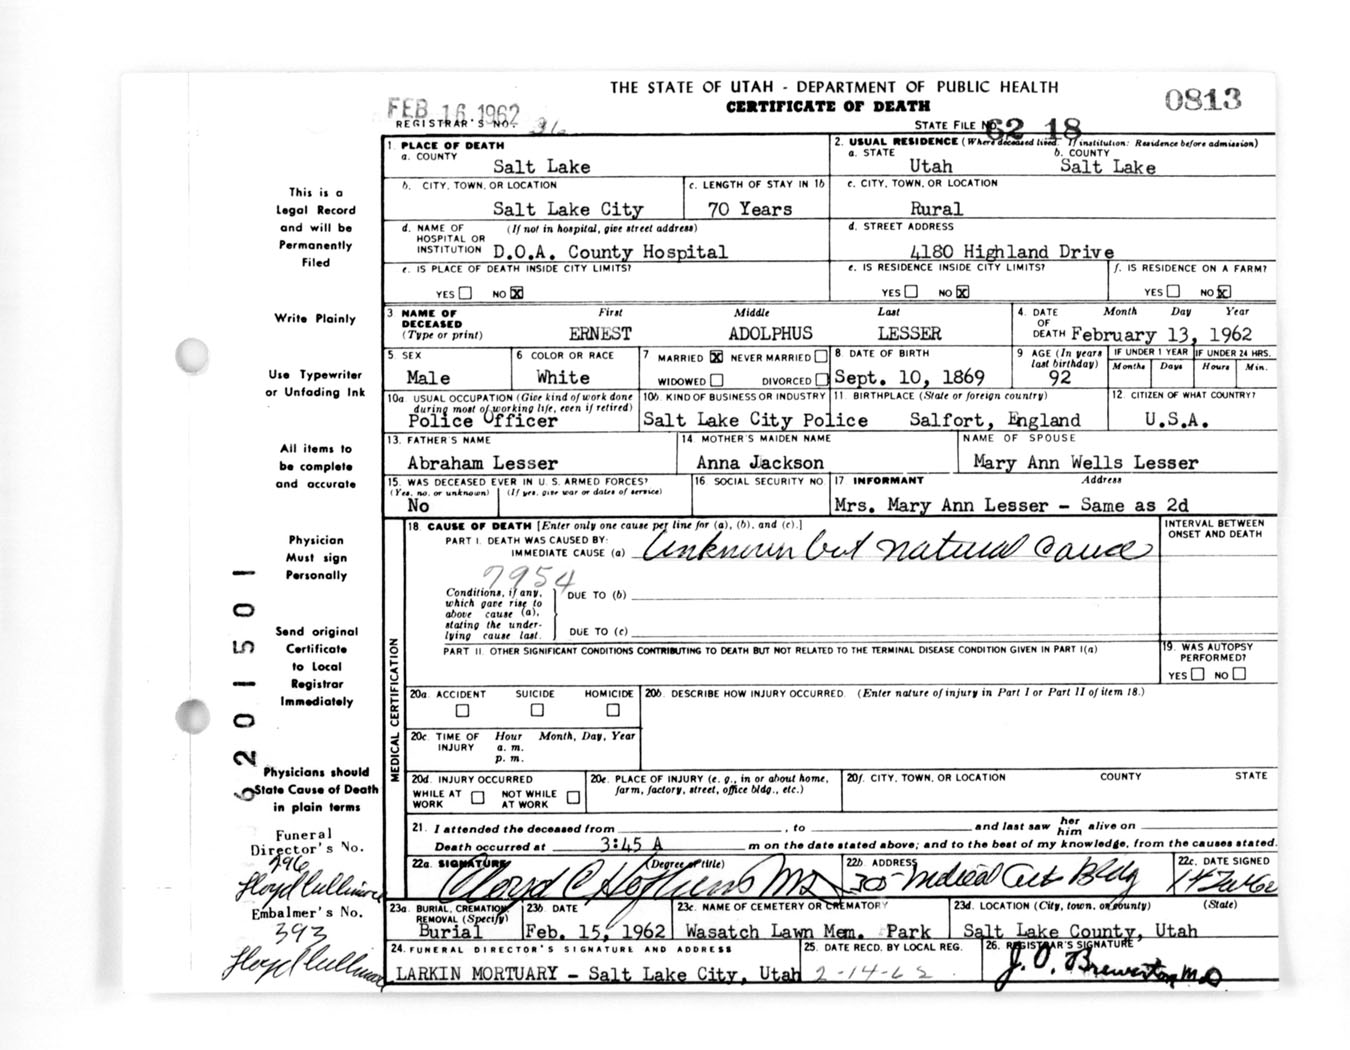 THE STATE OF UTAH - DEPARTMENT OF PUBLIC HEALTH
CERTIFICATE OF DEATH
0813
FEB 16 1962
REGISTRAR'S NO.
STATE FILE NO. 62 18
1. PLACE OF DEATH
a. COUNTY
Salt Lake
2. USUAL RESIDENCE (Where deceased lived. If institution: Residence before admission)
a. STATE b. COUNTY
Utah Salt Lake
b. CITY, TOWN, OR LOCATION
Salt Lake City
c. LENGTH OF STAY IN 1b
70 Years
c. CITY, TOWN, OR LOCATION
Rural
d. NAME OF HOSPITAL OR INSTITUTION (If not in hospital, give street address)
D.O.A. County Hospital
d. STREET ADDRESS
4180 Highland Drive
e. IS PLACE OF DEATH INSIDE CITY LIMITS?
YES NO X
e. IS RESIDENCE INSIDE CITY LIMITS?
YES NO X
f. IS RESIDENCE ON A FARM?
YES NO X
3 NAME OF DECEASED (Type or print)
First Middle Last
ERNEST ADOLPHUS LESSER
4. DATE OF DEATH
Month Day Year
February 13, 1962
5. SEX
Male
6 COLOR OR RACE
White
7 MARRIED X NEVER MARRIED
WIDOWED DIVORCED
8 DATE OF BIRTH
Sept. 10, 1869
9 AGE (In years last birthday)
92
IF UNDER 1 YEAR
Months Days
IF UNDER 24 HRS.
Hours Min.
10a. USUAL OCCUPATION (Give kind of work done during most of working life, even if retired)
Police Officer
10b. KIND OF BUSINESS OR INDUSTRY
Salt Lake City Police
11. BIRTHPLACE (State or foreign country)
Salfort, England
12. CITIZEN OF WHAT COUNTRY?
U.S.A.
13. FATHER'S NAME
Abraham Lesser
14 MOTHER'S MAIDEN NAME
Anna Jackson
NAME OF SPOUSE
Mary Ann Wells Lesser
15. WAS DECEASED EVER IN U.S. ARMED FORCES?
(Yes, no, or unknown) (If yes, give war or dates of service)
No
16 SOCIAL SECURITY NO
17 INFORMANT Address
Mrs. Mary Ann Lesser - Same as 2d
18. CAUSE OF DEATH [Enter only one cause per line for (a), (b), and (c).]
PART I. DEATH WAS CAUSED BY:
IMMEDIATE CAUSE (a) Unknown but natural cause
INTERVAL BETWEEN ONSET AND DEATH
7954
Conditions, if any, which gave rise to above cause (a), stating the underlying cause last.
DUE TO (b)
DUE TO (c)
PART II. OTHER SIGNIFICANT CONDITIONS CONTRIBUTING TO DEATH BUT NOT RELATED TO THE TERMINAL DISEASE CONDITION GIVEN IN PART I(a)
19. WAS AUTOPSY PERFORMED?
YES NO
MEDICAL CERTIFICATION
20a. ACCIDENT SUICIDE HOMICIDE
20b. DESCRIBE HOW INJURY OCCURRED. (Enter nature of injury in Part I or Part II of item 18.)
20c. TIME OF INJURY
Hour Month, Day, Year
a. m.
p. m.
20d. INJURY OCCURRED
WHILE AT WORK NOT WHILE AT WORK
20e. PLACE OF INJURY (e. g., in or about home, farm, factory, street, office bldg., etc.)
20f. CITY, TOWN, OR LOCATION COUNTY STATE
21. I attended the deceased from , to and last saw her him alive on
Death occurred at 3:45 A m on the date stated above; and to the best of my knowledge, from the causes stated.
22a. SIGNATURE (Degree or title)
22b. ADDRESS
305 Medical Arts Bldg
22c. DATE SIGNED
14 Feb 62
23a. BURIAL, CREMATION, REMOVAL (Specify)
Burial
23b. DATE
Feb. 15, 1962
23c. NAME OF CEMETERY OR CREMATORY
Wasatch Lawn Mem. Park
23d. LOCATION (City, town, or county) (State)
Salt Lake County, Utah
24. FUNERAL DIRECTOR'S SIGNATURE AND ADDRESS
LARKIN MORTUARY - Salt Lake City, Utah
25. DATE RECD. BY LOCAL REG.
2-14-62
26. REGISTRAR'S SIGNATURE
J. O. Brewerton, M.D
This is a
Legal Record
and will be
Permanently
Filed
Write Plainly
Use Typewriter
or Unfading Ink
All items to
be complete
and accurate
Physician
Must sign
Personally
Send original
Certificate
to Local
Registrar
Immediately
Physicians should
State Cause of Death
in plain terms
Funeral
Director's No.
796
Lloyd Cullimore
Embalmer's No.
393
Lloyd Cullimore
62 01501